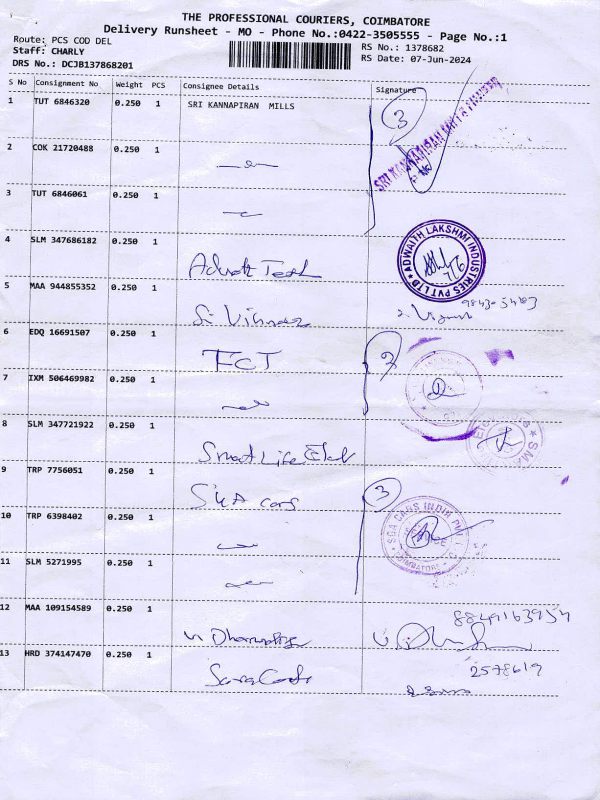 THE PROFESSIONAL COURIERS, COIMBATORE
Delivery Runsheet - MO - Phone No.:0422-3505555 - Page No.:1
Route: PCS COD DEL
Staff: CHARLY
DRS No.: DCJB137868201
RS No.: 1378682
RS Date: 07-Jun-2024
S No Consignment No Weight PCS Consignee Details Signature
1 TUT 6846320 0.250 1 SRI KANNAPIRAN MILLS 3
2 COK 21720488 0.250 1
3 TUT 6846061 0.250 1
4 SLM 347686182 0.250 1
ADWAITH LAKSHMI INDUSTRIES PVT LTD
5 MAA 944855352 0.250 1
6 EDQ 16691507 0.250 1 FCT 2
7 IXM 506469982 0.250 1
8 SLM 347721922 0.250 1 Smart Life
9 TRP 7756051 0.250 1 SGA cars 3
SGA CARS INDIA PVT
COIMBATORE
10 TRP 6398402 0.250 1
11 SLM 5271995 0.250 1
12 MAA 109154589 0.250 1
13 HRD 374147470 0.250 1 2578619